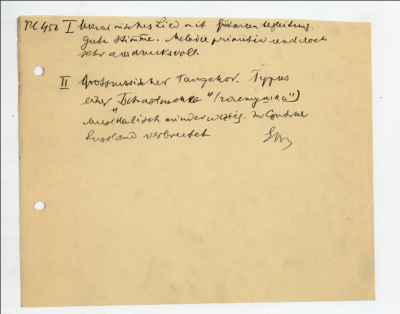 PK 456 I Ukrainisches Lied mit Guitarren begleitung.
gute Stimme. Melodie primitiv und doch
sehr ausdrucksvoll.
II Grossrussischer Tanzchor. Typus
einer Tschastuschka "(частушка")
Musikalisch minderwertig. In Central
Russland verbreitet